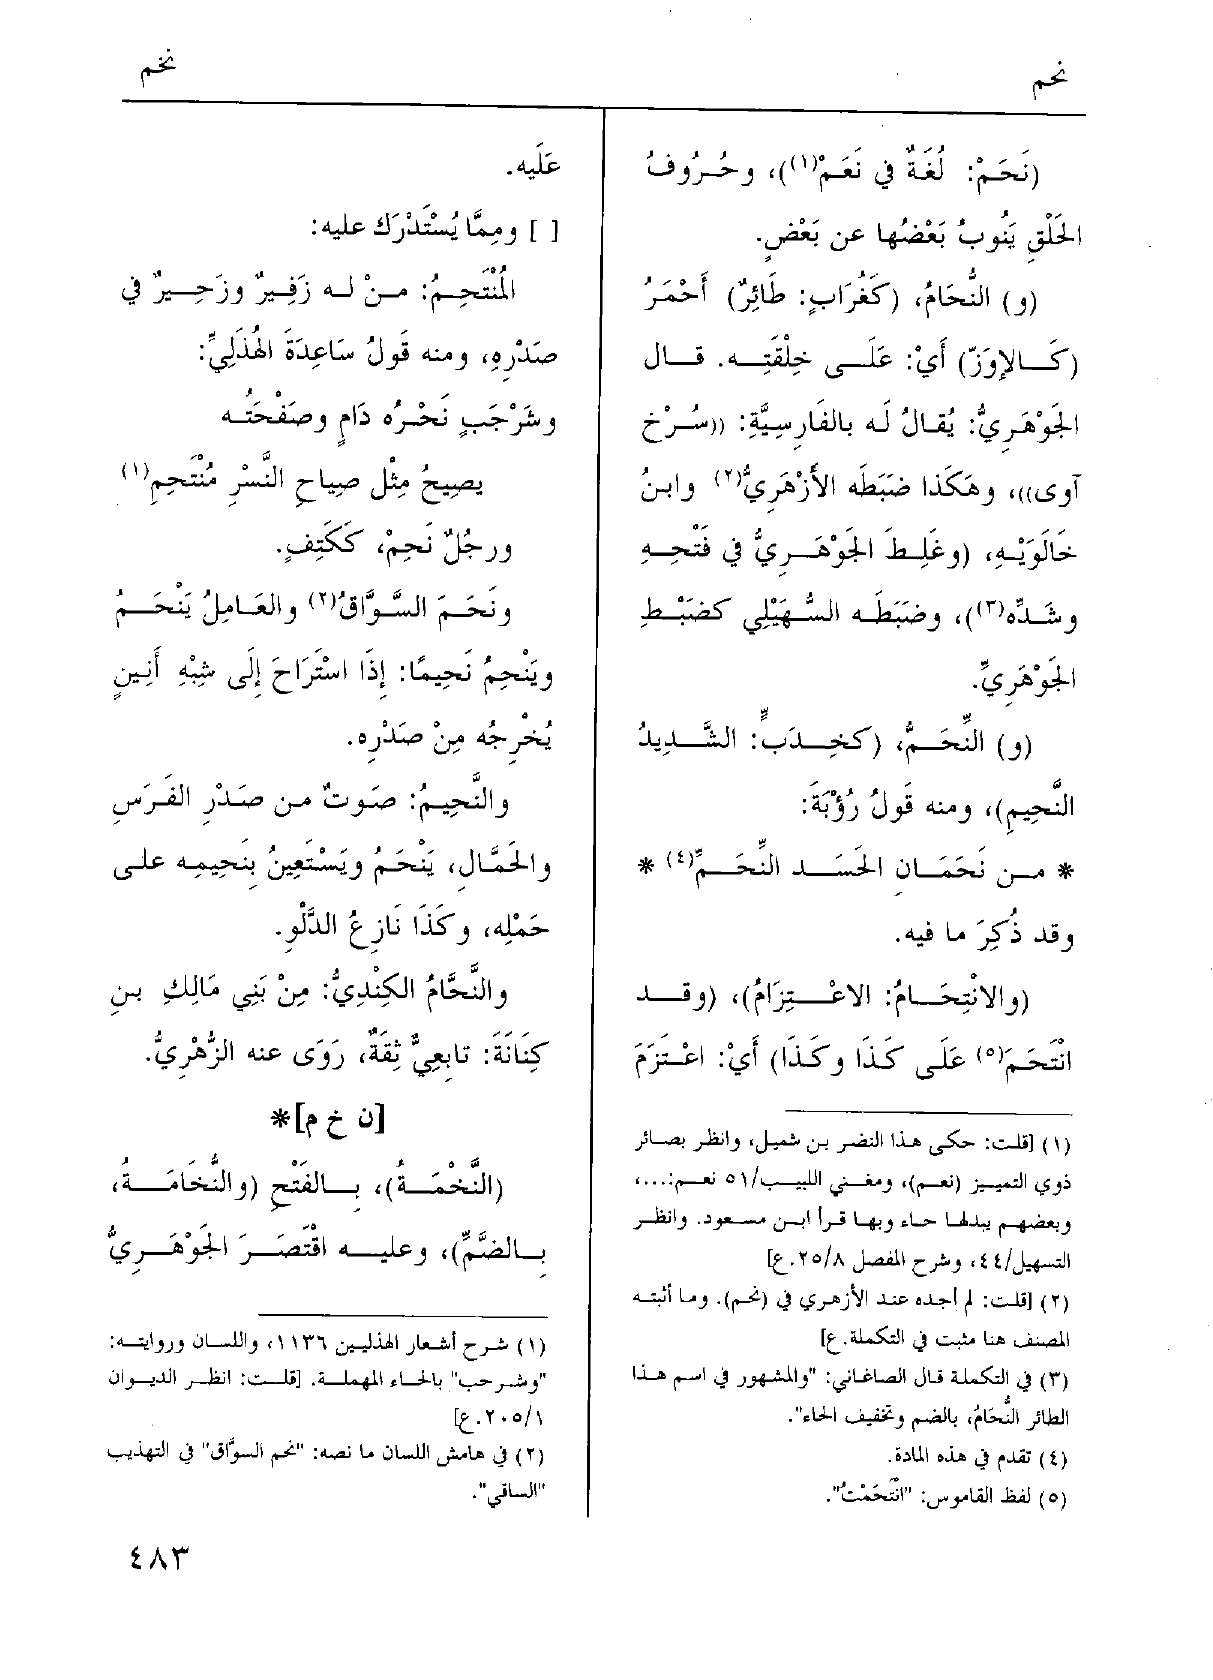 نحم
نخم
(نَحَمْ: لُغَةٌ في نَعَمْ(١))، وحُرُوفُ
الحَلْقِ يَنُوبُ بَعْضُها عن بَعْضٍ.
(و) النُّحَامُ، (كغُرَابٍ: طائِرٌ) أَحْمَرُ
(كَالإوَزّ) أَيْ: عَلَى خِلْقَتِه. قال
الجَوْهَرِيُّ: يُقالُ لَه بالفَارِسِيَّةِ: ((سُرْخ
آوى))، وهَكَذا ضَبَطَه الأَزْهَرِيُّ(٢) وابنُ
خَالَوَيْهِ، (وغَلِطَ الجَوْهَرِيُّ في فَتْحِهِ
وشَدِّه(٣))، وضَبَطَه السُّهَيْلِي كضَبْطِ
الجَوْهَرِيِّ.
(و) النِّحَمُّ، (كخِدَبٍّ: الشَّدِيدُ
النَّحِيمِ)، ومنه قَولُ رُؤْبَةَ:
* من نَحَمَانِ الحَسَد النِّحَمِّ(٤) *
وقد ذُكِرَ ما فيه.
(والانْتِحَامُ: الاعْتِزَامُ)، (وقد
انْتَحَمَ(٥) عَلَى كَذَا وكَذَا) أَيْ: اعْتَزَمَ
(١) [قلت: حكى هذا النضر بن شميل، وانظر بصائر
ذوي التمييز (نعم)، ومغني اللبيب/٥١ نعم:...،
وبعضهم يبدلها حاء وبها قرأ ابن مسعود. وانظر
التسهيل/٤٤، وشرح المفصل ٢٥/٨.ع]
(٢) [قلت: لم أجده عند الأزهري في (نحم). وما أثبته
المصنف هنا مثبت في التكملة.ع]
(٣) في التكملة قال الصاغاني: "والمشهور في اسم هذا
الطائر النُّحَامُ، بالضم وتخفيف الحاء".
(٤) تقدم في هذه المادة.
(٥) لفظ القاموس: "انْتَحَمْتُ".
عَلَيه.
[ ] ومِمَّا يُسْتَدْرَك عليه:
المُنْتَحِمُ: مَنْ له زَفِيرٌ وزَحِيرٌ في
صَدْرِهِ، ومنه قَولُ سَاعِدَةَ الهُذَلِيِّ:
وشَرْجَبٍ نَحْرُه دَامٍ وصَفْحَتُه
يصِيحُ مِثْل صِياحِ النَّسْرِ مُنْتَحِمِ(١)
ورجُلٌ نَحِمٌ، كَكَتِفٍ.
ونَحَمَ السَّوَّاقُ(٢) والعَامِلُ يَنْحَمُ
ويَنْحِمُ نَحِيمًا: إِذَا اسْتَرَاحَ إِلَى شِبْهِ أَنِينٍ
يُخْرِجُه مِنْ صَدْرِه.
والنَّحِيمُ: صَوتٌ من صَدْرِ الفَرَسِ
والحَمَّالِ، يَنْحَمُ ويَسْتَعِينُ بنَحِيمِه على
حَمْلِه، وكَذَا نَازِعُ الدَّلْوِ.
والنَّحَّامُ الكِنْدِيُّ: مِنْ بَنِي مَالِكِ بنِ
كِنَانَةَ: تابِعِيٌّ ثِقَةٌ، رَوَى عنه الزُّهْرِيُّ.
[ن خ م]*
(النَّخْمَةُ)، بالفَتْحِ (والنُّخَامَةُ،
بالضَّمِّ)، وعليه اقْتَصَرَ الجَوْهَرِيُّ
(١) شرح أشعار الهذليين ١١٣٦، واللسان وروايته:
"وشرحب" بالحاء المهملة. [قلت: انظر الديوان
٢٠٥/١.ع]
(٢) في هامش اللسان ما نصه: "نحم السوَّاق" في التهذيب
"الساقي".
٤٨٣